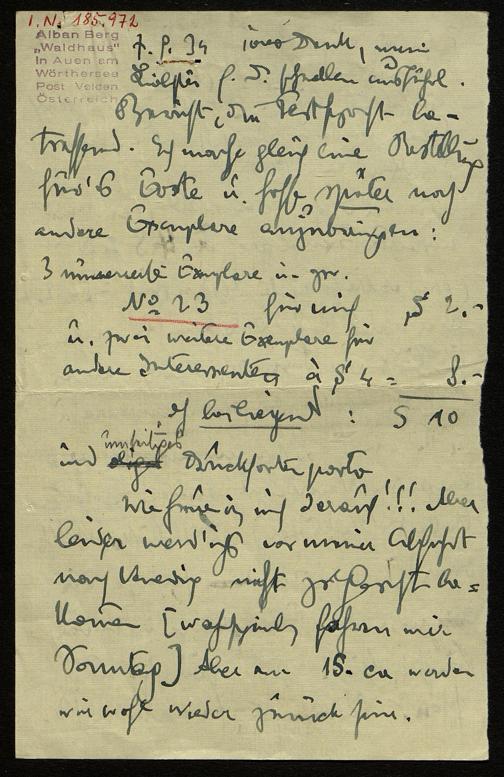 I. N. 185.972
Alban Berg
„Waldhaus"
in Auen am
Wörthersee
Post Velden
Österreich
7. 9. 34 Dank, mein
Liebster f. d. schnellen ausführl.
Bericht, die Festschrift be-
treffend. Ich mache gleich eine Bestellung
für's Erste u. hoffe, später noch
andere Exemplare anzubringen:
3 numerierte Exemplare u. zw.
No 23 für mich S 2.-
u. zwei weitere Exemplare für
andere Interessenten à S 4 = 8.-
beiliegend: S 10
und Drucksortenporto
Wie freue ich mich darauf!!! Aber
leider werd' ich's vor meiner Abfahrt
nach Venedig nicht zu Gesicht be=
kommen [wahrscheinl. fahren wir
Sonntag] Aber am 15. ca werden
wir wohl wieder zurück sein.